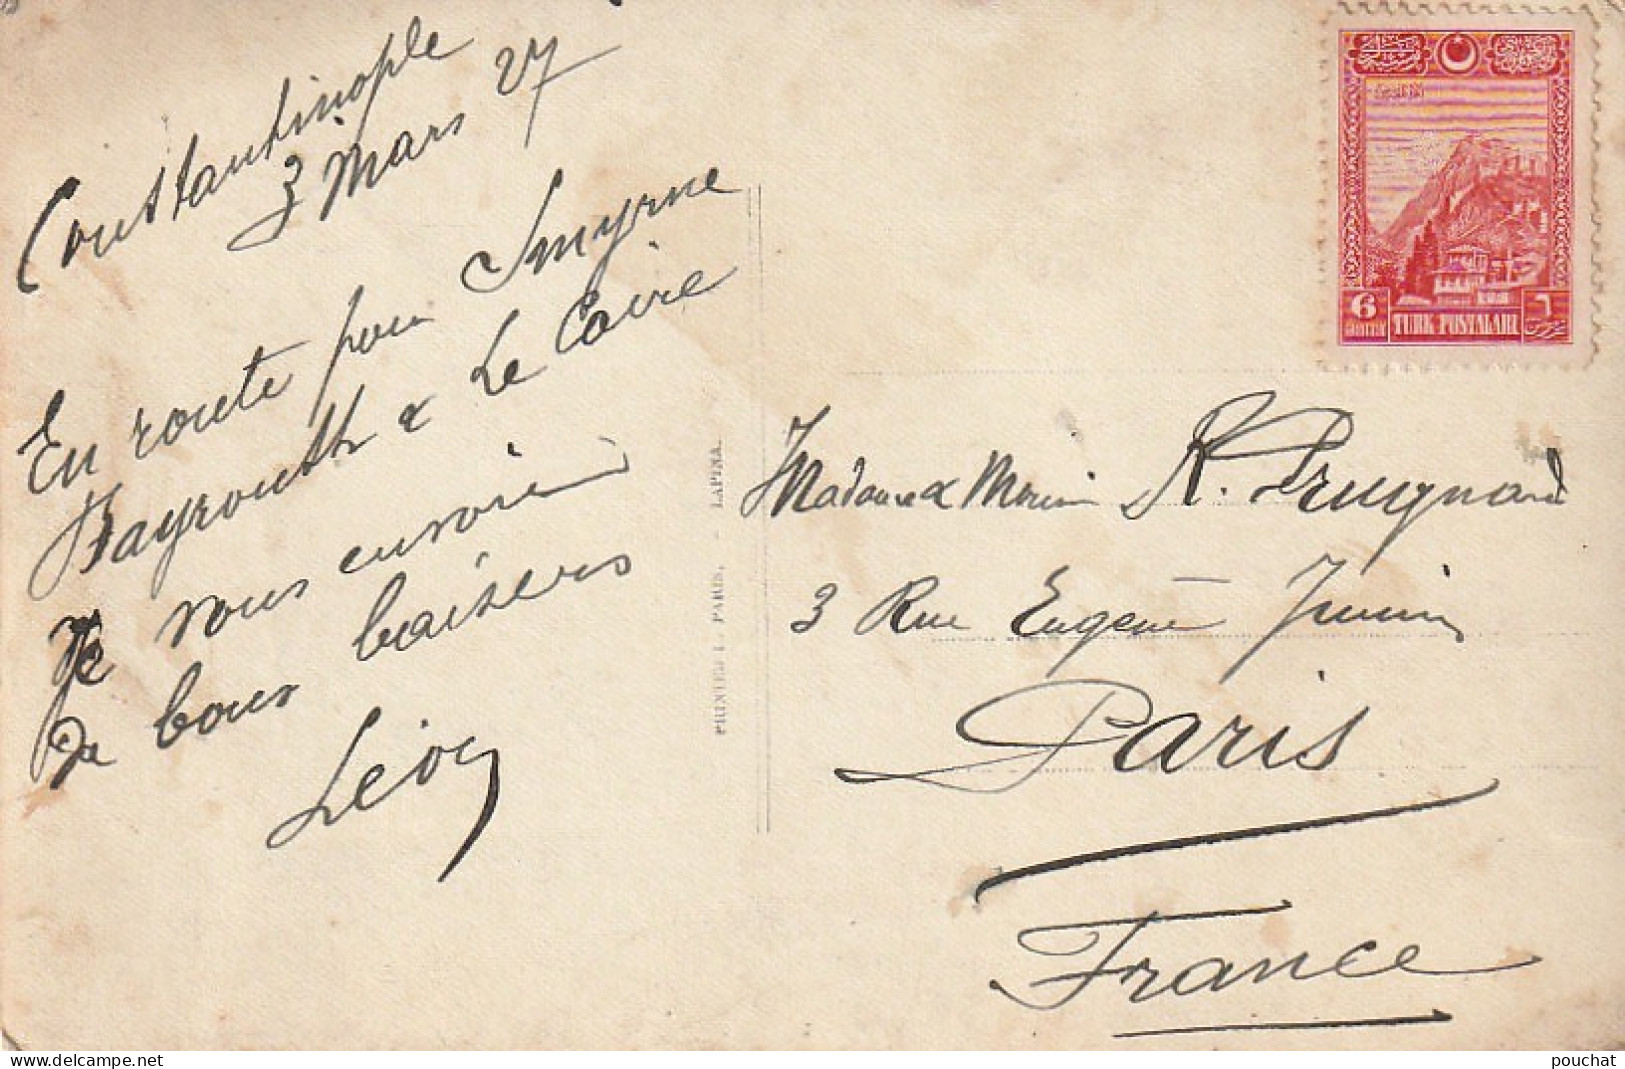 Constantinople
3 Mars 27
En route pour Smyrne
Bayrouth & Le Caire
Je vous envoie
de bons baisers
Léon
PRINTED I. PARIS, - LAPINA.
6
TURK POSTALARI
٦
Madame & R. Prugnard
3 Rue Eugène
Paris
France
pouchat